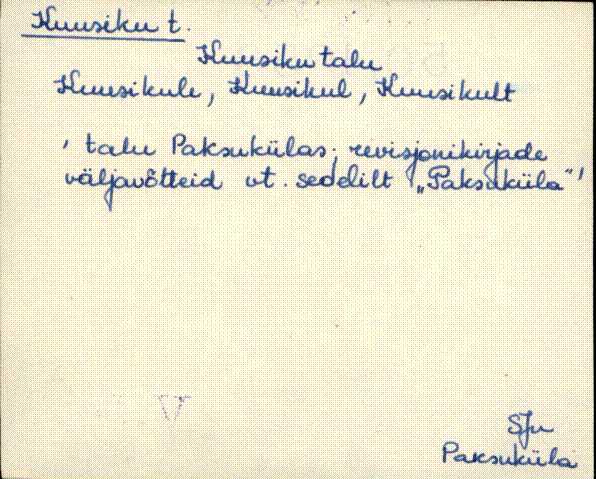 Kuusiku t.
Kuusiku talu
Kuusikule, Kuusikul, Kuusikult
' talu Paksukülas; revisjonikirjade
väljavõtteid vt. sedelilt „Paksuküla" '
V
SJn
Paksuküla